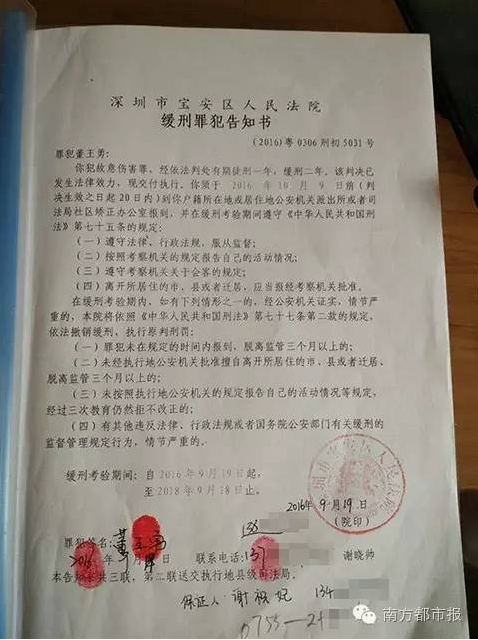 深圳市宝安区人民法院
缓刑罪犯告知书
(2016)粤0306刑初5031号
罪犯董王勇：
你犯故意伤害罪，经依法判处有期徒刑一年，缓刑二年。该判决已
发生法律效力，现交付执行。你须于 2016 年 10 月 9 日前(判
决生效之日起20日内)到你户籍所在地或居住地公安机关派出所或者司
法局社区矫正办公室报到，并在缓刑考验期间遵守《中华人民共和国刑
法》第七十五条的规定：
(一)遵守法律、行政法规，服从监督；
(二)按照考察机关的规定报告自己的活动情况；
(三)遵守考察机关关于会客的规定；
(四)离开所居住的市、县或者迁居，应当报经考察机关批准。
在缓刑考验期内，如有下列情形之一的，经公安机关证实，情节严
重的，本院将依照《中华人民共和国刑法》第七十七条第二款的规定，
依法撤销缓刑，执行原判刑罚：
(一)罪犯未在规定的时间内报到，脱离监管三个月以上的；
(二)未经执行地公安机关批准擅自离开所居住的市、县或者迁居，
脱离监管三个月以上的；
(三)未按照执行地公安机关的规定报告自己的活动情况等规定，
经过三次教育仍然拒不改正的；
(四)有其他违反法律、行政法规或者国务院公安部门有关缓刑的
监督管理规定行为，情节严重的。
缓刑考验期间：自2016年9月19日起，
至2018年9月18日止。
深圳市宝安区人民法院
2016年9月19日
(院印)
138
罪犯签名：董王勇
2016年 月 日 联系电话：137 谢晓帅
本告知书共三联，第二联送交执行地县级司法局。
保证人：谢 妃 134
0755-21
南方都市报